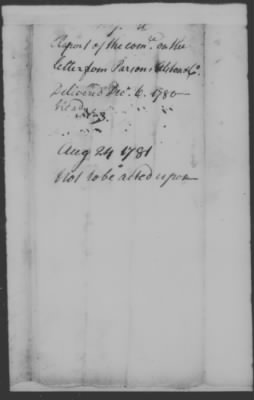 Report of the comee. on the
letter from Parsons Alston & Co.
Delivered Decr. 6. 1780
Read
Aug 24 1781
Not to be acted upon